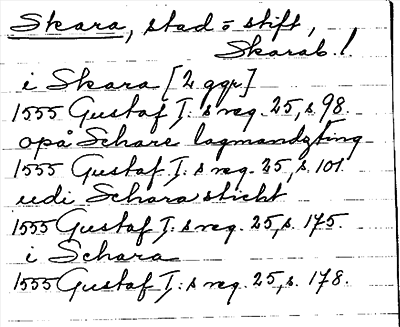 Skara, stad = stift,
Skarab. l.
i Skara [2 ggr]
1555 Gustaf I:s reg. 25, s. 98.
opå Schare lagmandzting
1555 Gustaf I:s reg. 25, s. 101
udi Schara sticht
1555 Gustaf I:s reg. 25, s. 175.
i Schara
1555 Gustaf I:s reg. 25, s. 178.